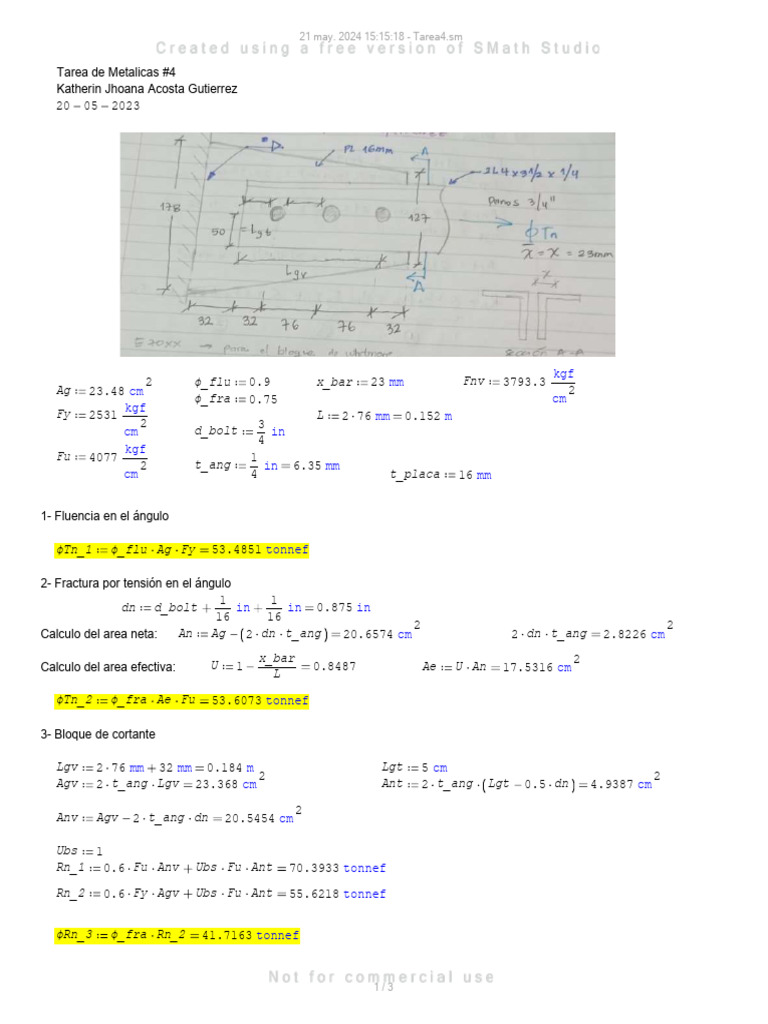 21 may. 2024 15:15:18 - Tarea4.sm
Created using a free version of SMath Studio
Tarea de Metalicas #4
Katherin Jhoana Acosta Gutierrez
20 – 05 – 2023
PL 16mm
A
2L4 x 3 1/2 x 1/4
Pernos 3/4"
178
50
= Lgt
127
ϕTn
x̄ = x = 23mm
Lgv
A
32 32 76 76 32
Sección A-A
Ag := 23.48 cm²
ϕ_flu := 0.9
x_bar := 23 mm
Fnv := 3793.3 kgf/cm²
ϕ_fra := 0.75
Fy := 2531 kgf/cm²
L := 2·76 mm = 0.152 m
d_bolt := 3/4 in
Fu := 4077 kgf/cm²
t_ang := 1/4 in = 6.35 mm
t_placa := 16 mm
1- Fluencia en el ángulo
ϕTn_1 := ϕ_flu·Ag·Fy = 53.4851 tonnef
2- Fractura por tensión en el ángulo
dn := d_bolt + 1/16 in + 1/16 in = 0.875 in
Calculo del area neta: An := Ag – (2·dn·t_ang) = 20.6574 cm² 2·dn·t_ang = 2.8226 cm²
Calculo del area efectiva: U := 1 – x_bar/L = 0.8487 Ae := U·An = 17.5316 cm²
ϕTn_2 := ϕ_fra·Ae·Fu = 53.6073 tonnef
3- Bloque de cortante
Lgv := 2·76 mm + 32 mm = 0.184 m Lgt := 5 cm
Agv := 2·t_ang·Lgv = 23.368 cm² Ant := 2·t_ang·(Lgt – 0.5·dn) = 4.9387 cm²
Anv := Agv – 2·t_ang·dn = 20.5454 cm²
Ubs := 1
Rn_1 := 0.6·Fu·Anv + Ubs·Fu·Ant = 70.3933 tonnef
Rn_2 := 0.6·Fy·Agv + Ubs·Fu·Ant = 55.6218 tonnef
ϕRn_3 := ϕ_fra·Rn_2 = 41.7163 tonnef
Not for commercial use
1 / 3